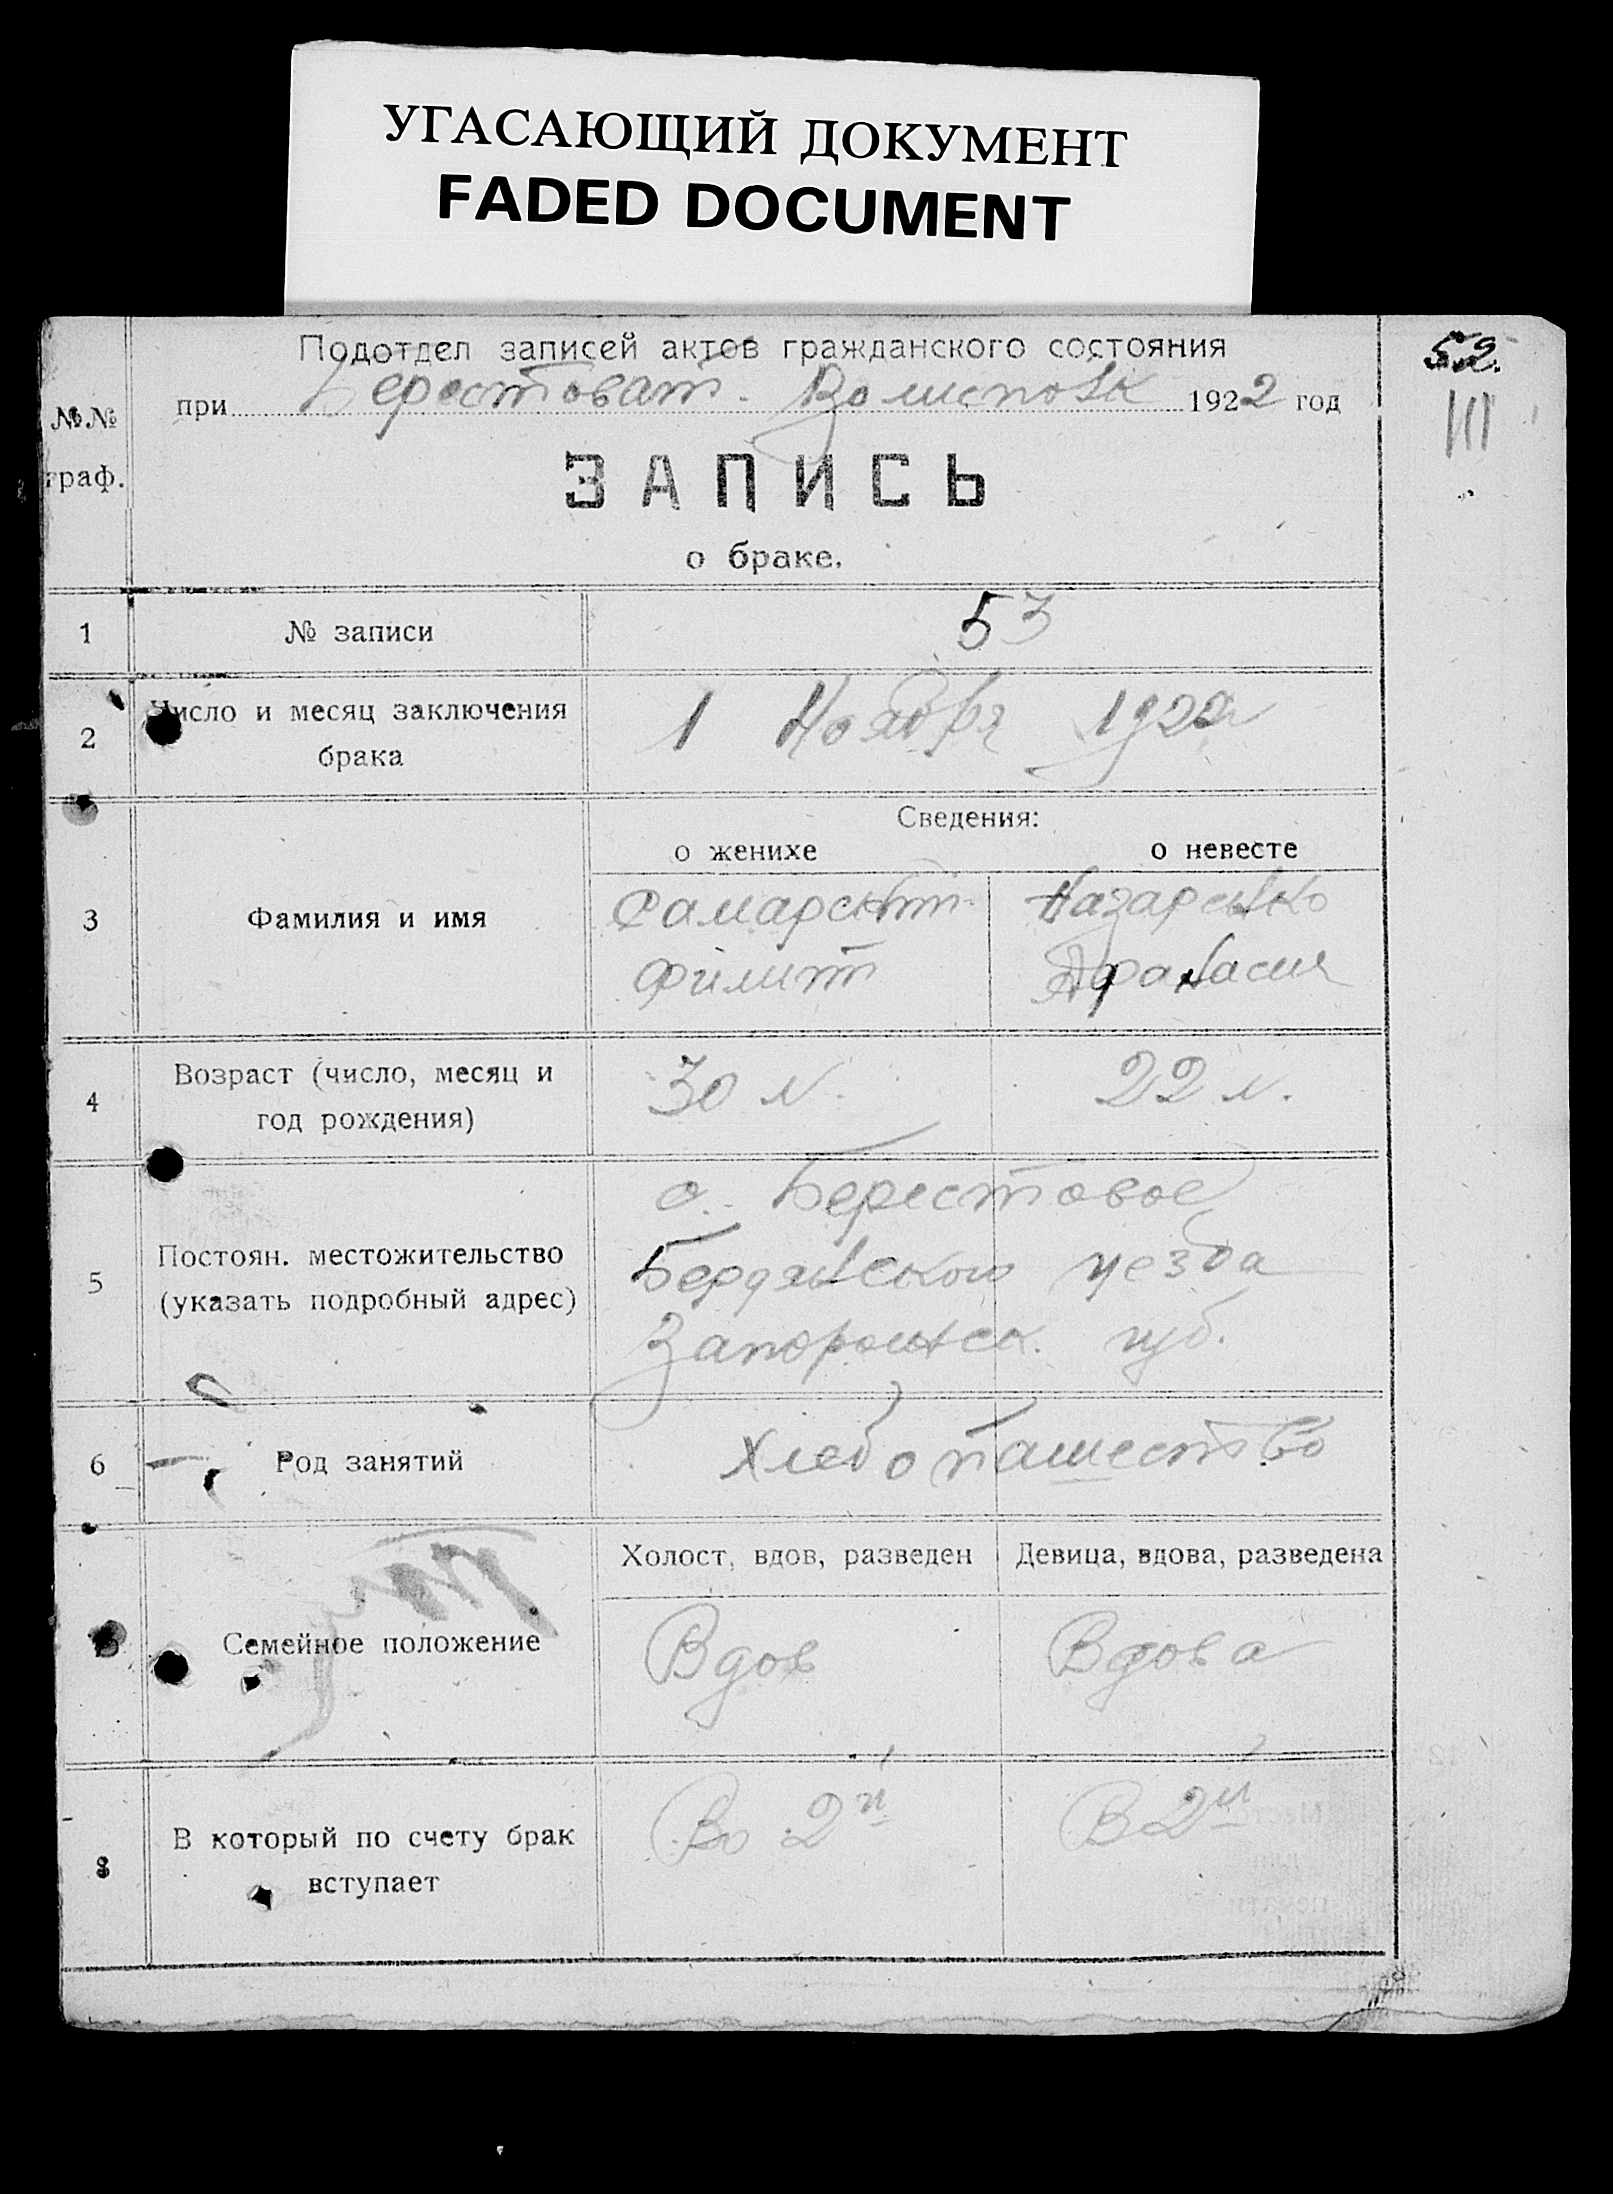 УГАСАЮЩИЙ ДОКУМЕНТ
FADED DOCUMENT
52.
III
Подотдел записей актов гражданского состояния
при Берестоват. Волисполк 1922 год
№№
граф.
ЗАПИСЬ
о браке.
1 № записи 53
2 Число и месяц заключения
брака
1 Ноября 1922
Сведения:
о женихе о невесте
3 Фамилия и имя
Назаренко
Филипп Афанасия
4 Возраст (число, месяц и
год рождения)
30 л. 22 л.
5 Постоян. местожительство
(указать подробный адрес)
с. Берестовое
Бердянского уезда
Запорожск. губ.
6 Род занятий Хлебопашество
Холост, вдов, разведен Девица, вдова, разведена
Семейное положение
Вдов Вдова
8 В который по счету брак
вступает
Во 2й В 2й